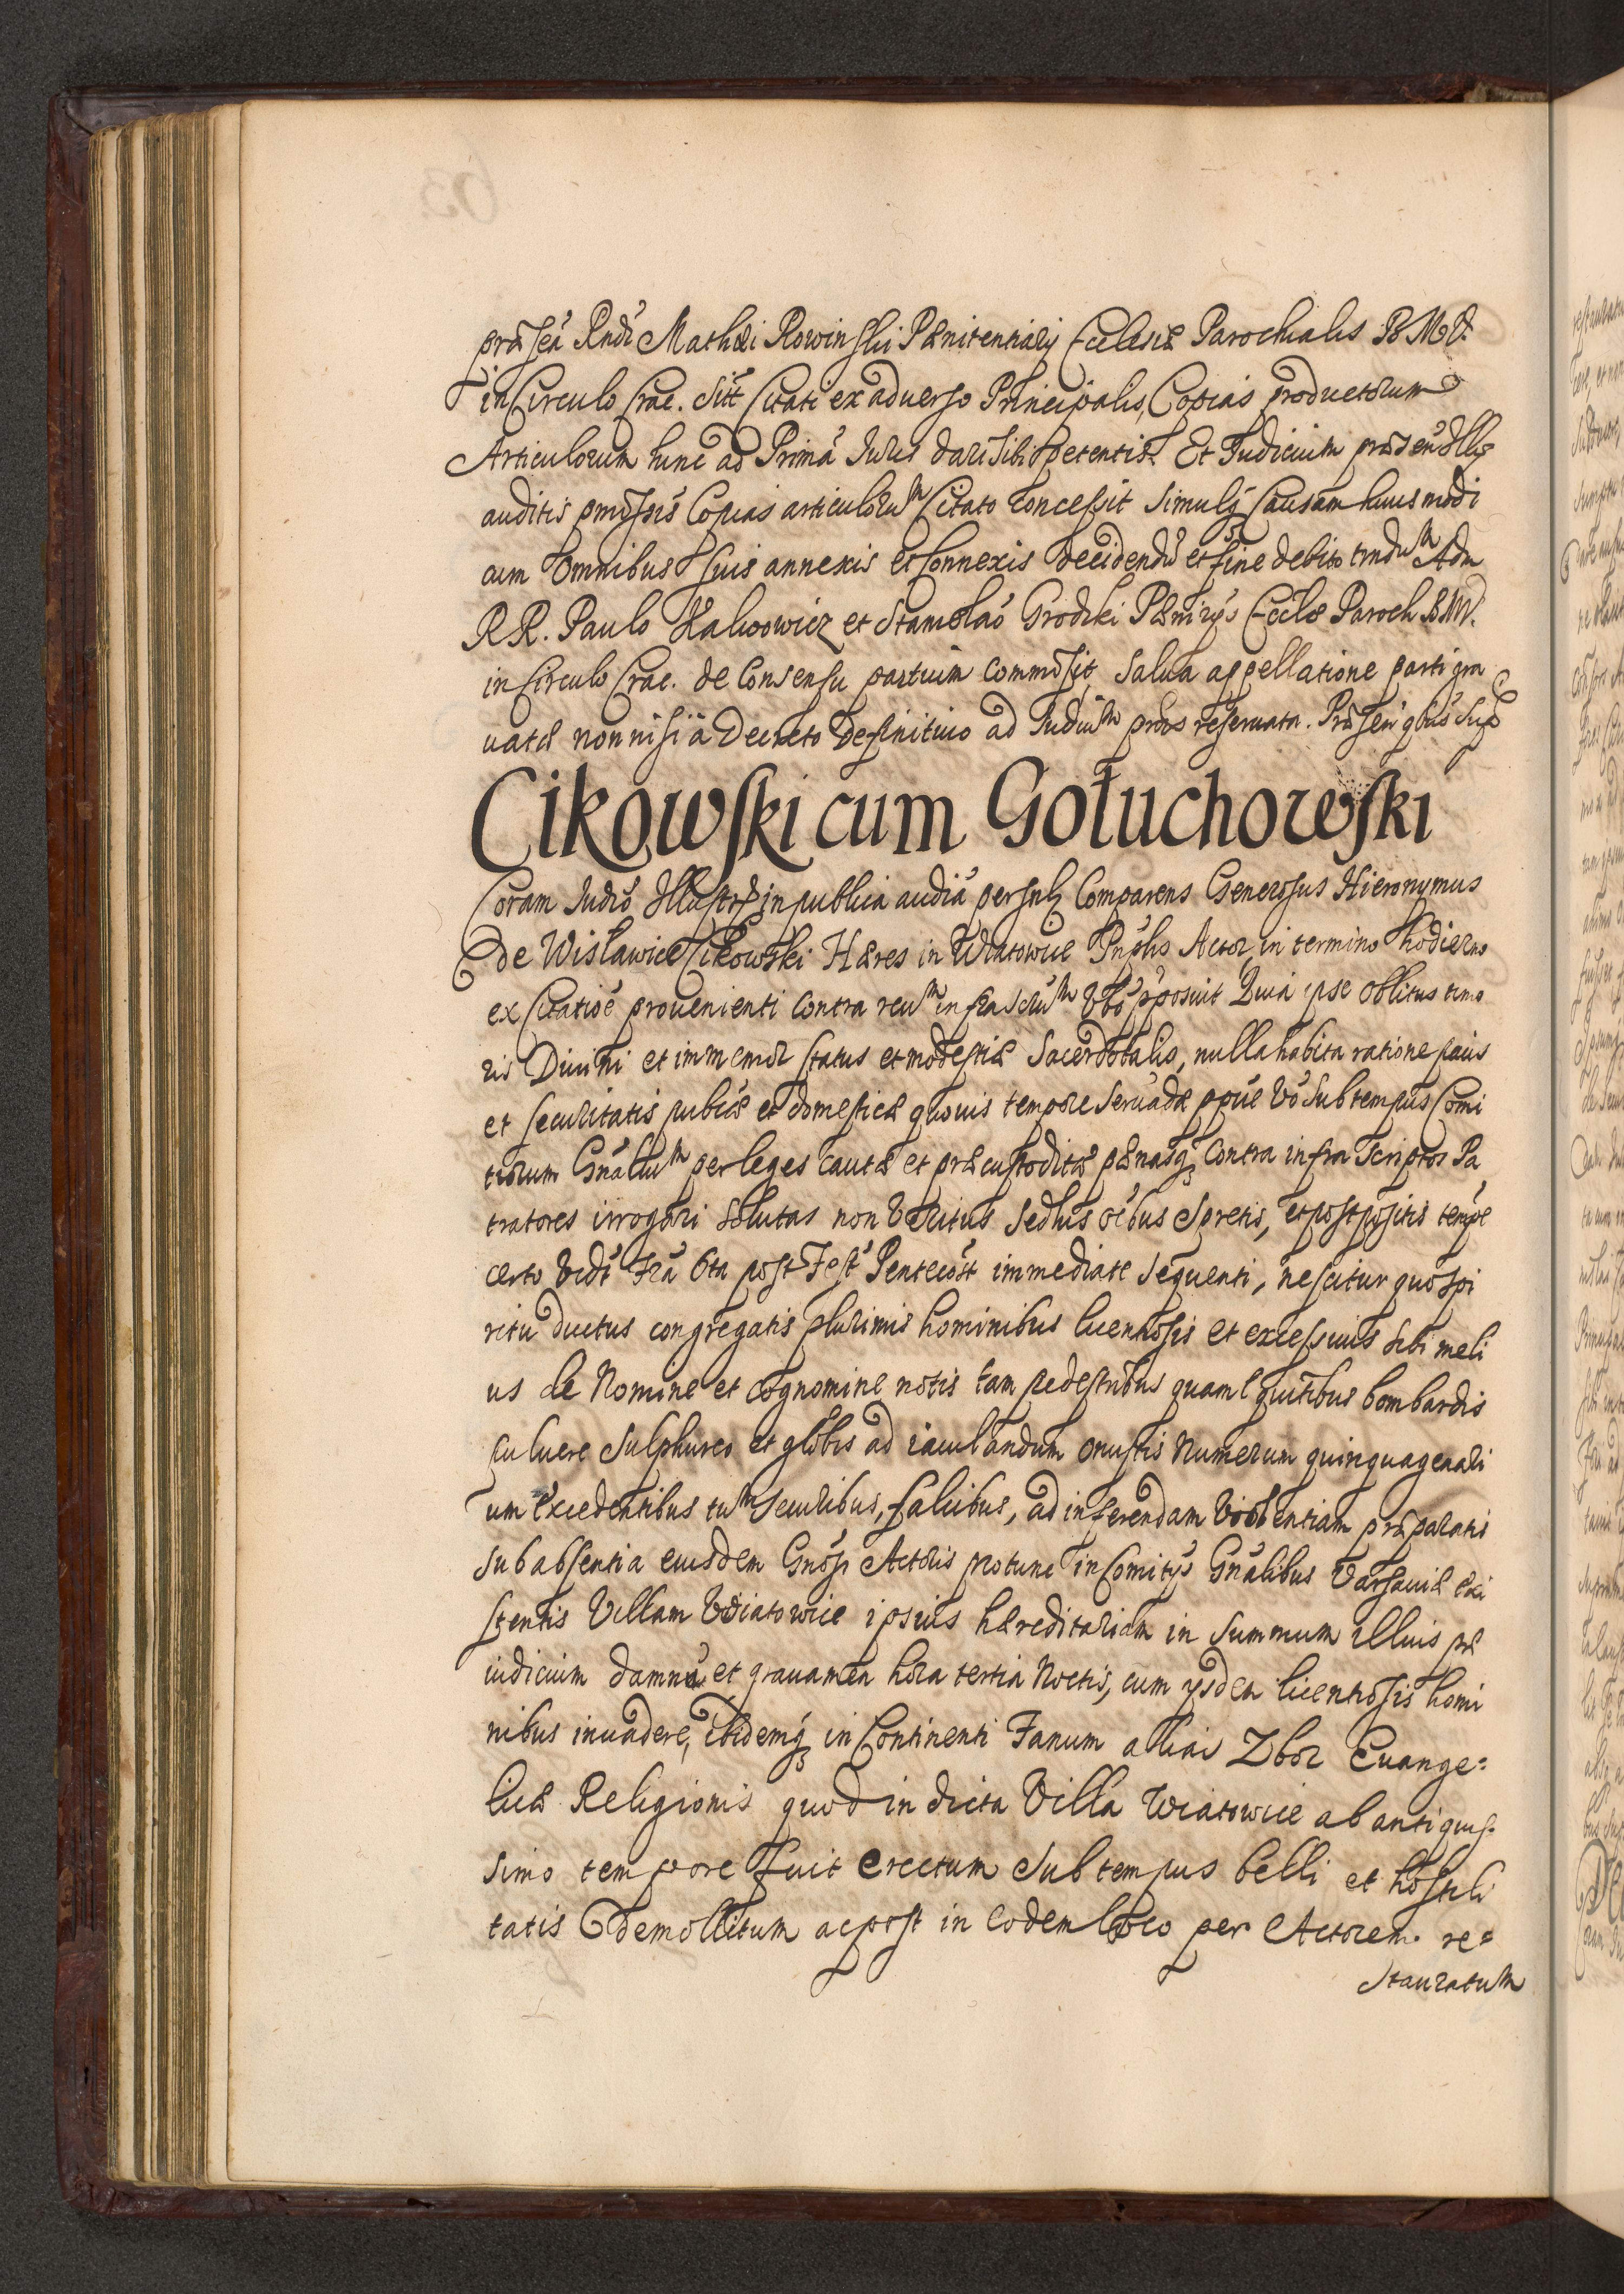 præsen Rndi Mathæi Rowinski Pænitentiarij Ecclesiæ Parochialis B M V.
in Circulo Crac. Sitt Citati ex aduerso Principalis, Copias productorum
Articulorum hunc ad Primā Iuris dari sibi petentis. Et Iudicium præsen Illr
auditis pmissis Copias articuloru^m Citato concessit simulq3 Causam huiusmodi
cum omnibus suis annexis et Connexis decidendu et fine debito tmdu^m Adm
R R. Paulo Halwowicz et Stanislao Grodzki Pænirys Eccle Paroch B M V.
in Circulo Crac. de Consensu partium commisit, salua appellatione parti gra
uatæ non nisi ā Decreto Definitiuo ad Iudiu^m præs reseruata. Præsen quis sup
Cikowski cum Gołuchowski
Coram Iudio Illustr in publica audiā persnlr Comparens Generosus Hieronymus
de Wisławice Cikowski Hæres in Wiatowice Pnplis Actor, in termino hodierno
ex Citatiōe prouenienti contra reu^m infrascru^m Vbo pposuit Quia ipse oblitus timo
ris Diuini et immemor status et modestiæ Sacerdotalis, nulla habita ratione pacis
et securitatis publicæ et domesticæ quouis tempore seruādæ ppūe Vō Sub tempus Comi
tiorum Gnāliu^m per leges cautæ et præcustoditæ pænasq3 contra infra scriptos Pa
tratores irrogari solutas non Veritus sed his oibus spretis, et postpositis tempe
certo Vidt Fra 6ta post Fest Pentecost immediate sequenti, nescitur quo spi
ritu ductus congregatis plurimis hominibus licentiosis et excessiuis sibi meli
us de Nomine et cognomine notis tam pedestribus quam equitibus bombardis
puluere sulphureo et globis ad iaculandum onustis Numerum quinquagenari
um excedentibus tu^m securibus, falcibus, ad inferendam Violentiam præparatis
sub absentia eiusdem Gnosi Actoris protunc in Comitys Gnālibus Varsauiæ exi
stentis Villam Wiatowice ipsius hæreditariam in summum illius præ
iudicium damnū et grauamen hora tertia Noctis, cum ysdem licentiosis homi
nibus inuadere, ibidemq3 in Continenti Fanum alias Zbor Euange=
licæ Religionis quod in dicta Villa Wiatowice ab antiquis=
simo tempore fuit erectum sub tempus belli et hostili
tatis demollitum ac post in eodem loco per Actorem. re=
stauratu^m